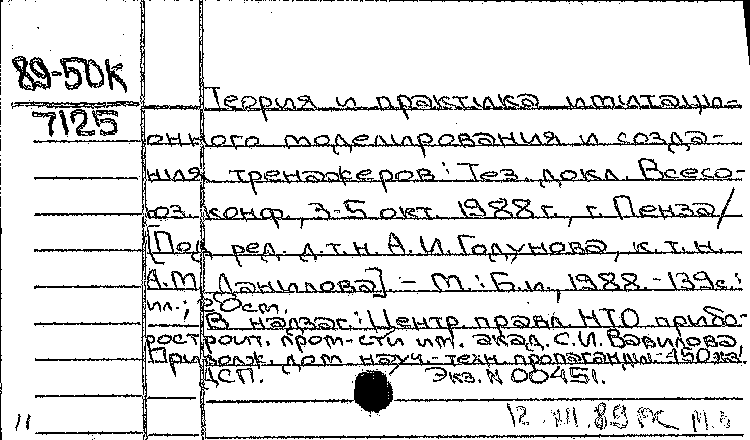 89-50К
7125
Теория и практика имитаци-
онного моделирования и созда-
ния тренажеров: Тез. докл. Всесо-
юз. конф., 3-5 окт. 1988 г., г. Пенза/
[Под ред. д.т.н. А.И. Годунова, к.т.н.
А.М. Данилова]. - М.: Б.и., 1988. - 139с.:
ил.; 20см.
В надзаг.: Центр. правл. НТО прибо-
ростроит. пром-сти им. акад. С.И. Вавилова,
Приволж. дом науч.-техн. пропаганды.-450экз.
ДСП. Экз. N 00451.
11 12.XII.89